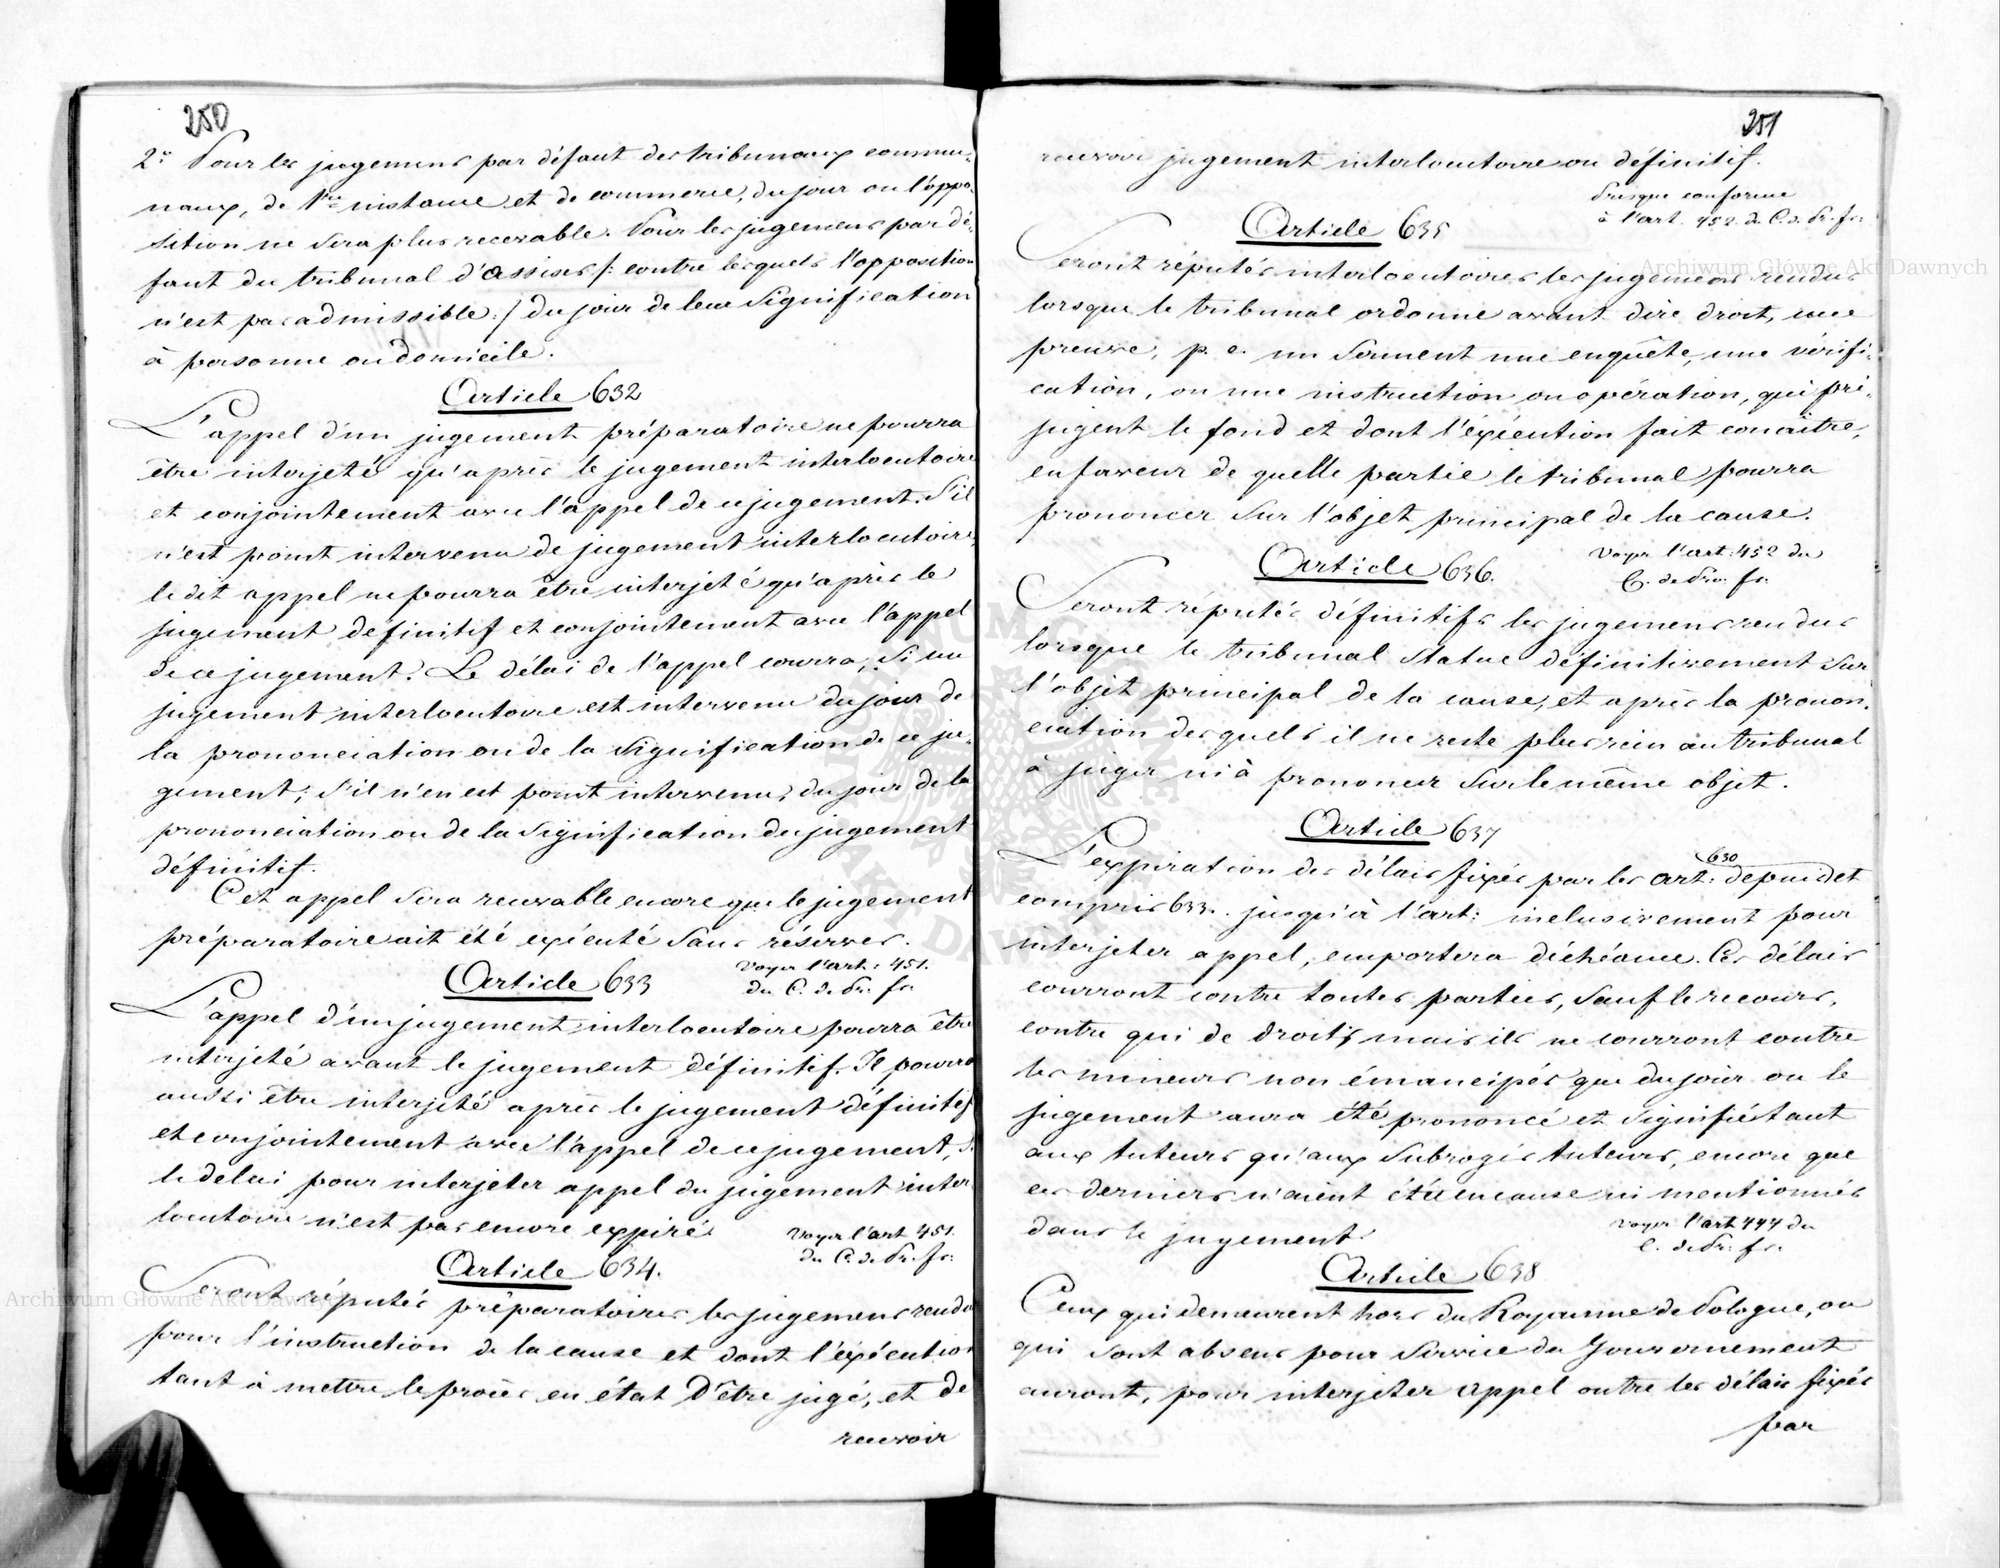 250
2º Pour les jugemens par défaut des tribunaux commu-
naux, de 1re instance et de commerce, du jour ou l'oppo-
sition ne sera plus recevable. Pour les jugemens par dé-
faut du tribunal d'Assises /: contre lesquels l'opposition
n'est pas admissible :/ du jour de leur signification
à personne ou domicile.
Article 632
L'appel d'un jugement préparatoire ne pourra
être interjeté qu'après le jugement interlocutoire
et conjointement avec l'appel de ce jugement. S'il
n'est point intervenu de jugement interlocutoire,
le dit appel ne pourra être interjeté qu'après le
jugement définitif et conjointement avec l'appel
de ce jugement. Le délai de l'appel courra, si un
jugement interlocutoire est intervenu du jour de
la prononciation ou de la signification de ce ju-
gement; s'il n'en est point intervenu, du jour de la
prononciation ou de la signification du jugement
définitif.
Cet appel sera recevable encore que le jugement
préparatoire ait été exécuté sans réserves.
Voyez l'art: 451.
du C. de Pr. fr.
Article 633
L'appel d'un jugement interlocutoire pourra être
interjeté avant le jugement définitif. Il pourra
aussi être interjeté après le jugement définitif
et conjointement avec l'appel de ce jugement, si
le delai pour interjeter appel du jugement inter
locutoire n'est pas encore expiré.
Voyez l'art 451.
du C. de Pr. fr.
Article 634.
Seront réputés préparatoires les jugemens rendus
pour l'instruction de la cause et dont l'éxécution
tant à mettre le procès en état d'être jugé, et de
recevoir
251
recevoir jugement interlocutoire ou définitif.
Presque conforme
à l'art. 452 du C. d. Pr. fr.
Article 635
Seront réputés interlocutoires les jugemens rendus
lorsque le tribunal ordonne avant dire droit, une
preuve, p. e. un serment une enquête, une vérifi-
cation, ou une instruction ou opération, qui pré-
jugent le fond et dont l'éxécution fait conaitre,
en faveur de quelle partie le tribunal pourra
prononcer sur l'objet principal de la cause.
Voyez l'art: 452 du
C. de Pro. fr.
Article 636.
Seront réputés définitifs les jugemens rendus
lorsque le tribunal statue définitivement sur
l'objet principal de la cause, et après la pronon-
ciation desquels il ne reste plus rien au tribunal
à juger ni à prononcer sur le même objet.
Article 637
L'expiration des délais fixés par les art: 630 depuis et
compris 633. jusqu'à l'art: inclusivement pour
interjeter appel, emportera déchéance. Ces délais
courront contre toutes parties, sauf le recours,
contre qui de droit; mais ils ne courront contre
les mineurs non émancipés que du jour ou le
jugement aura été prononcé et signifié tant
aux tuteurs qu'aux subrogés tuteurs, encore que
ces derniers n'aient été en cause ni mentionnés
dans le jugement.
Voyez l'art 444 du
C. de Pr. fr.
Article 638
Ceux qui demeurent hors du Royaume de Pologne, ou
qui sont absens pour service du Gouvernement
auront, pour interjeter appel outre les délais fixés
par
Archiwum Główne Akt Dawnych
Archiwum Główne Akt Dawnych